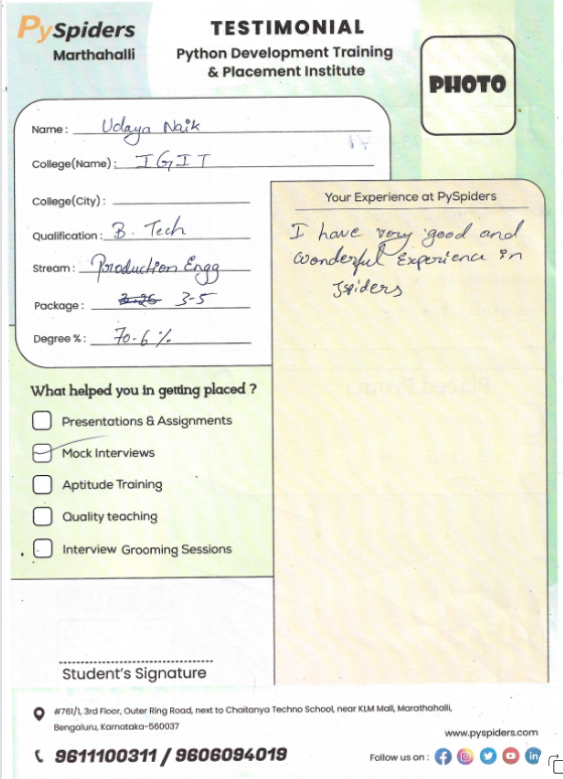 PySpiders
Marthahalli
TESTIMONIAL
Python Development Training
& Placement Institute
PHOTO
Name : Udaya Naik
College(Name) : IGIT
College(City) :
Qualification : B. Tech
Stream : Production Engg
Package : 3-5
Degree % : 70-6 %
Your Experience at PySpiders
I have very good and
wonderful Experience in
Jspiders
What helped you in getting placed ?
Presentations & Assignments
Mock Interviews
Aptitude Training
Quality teaching
Interview Grooming Sessions
Student's Signature
#761/1, 3rd Floor, Outer Ring Road, next to Chaitanya Techno School, near KLM Mall, Marathahalli,
Bengaluru, Karnataka-560037
www.pyspiders.com
9611100311 / 9606094019
Follow us on :